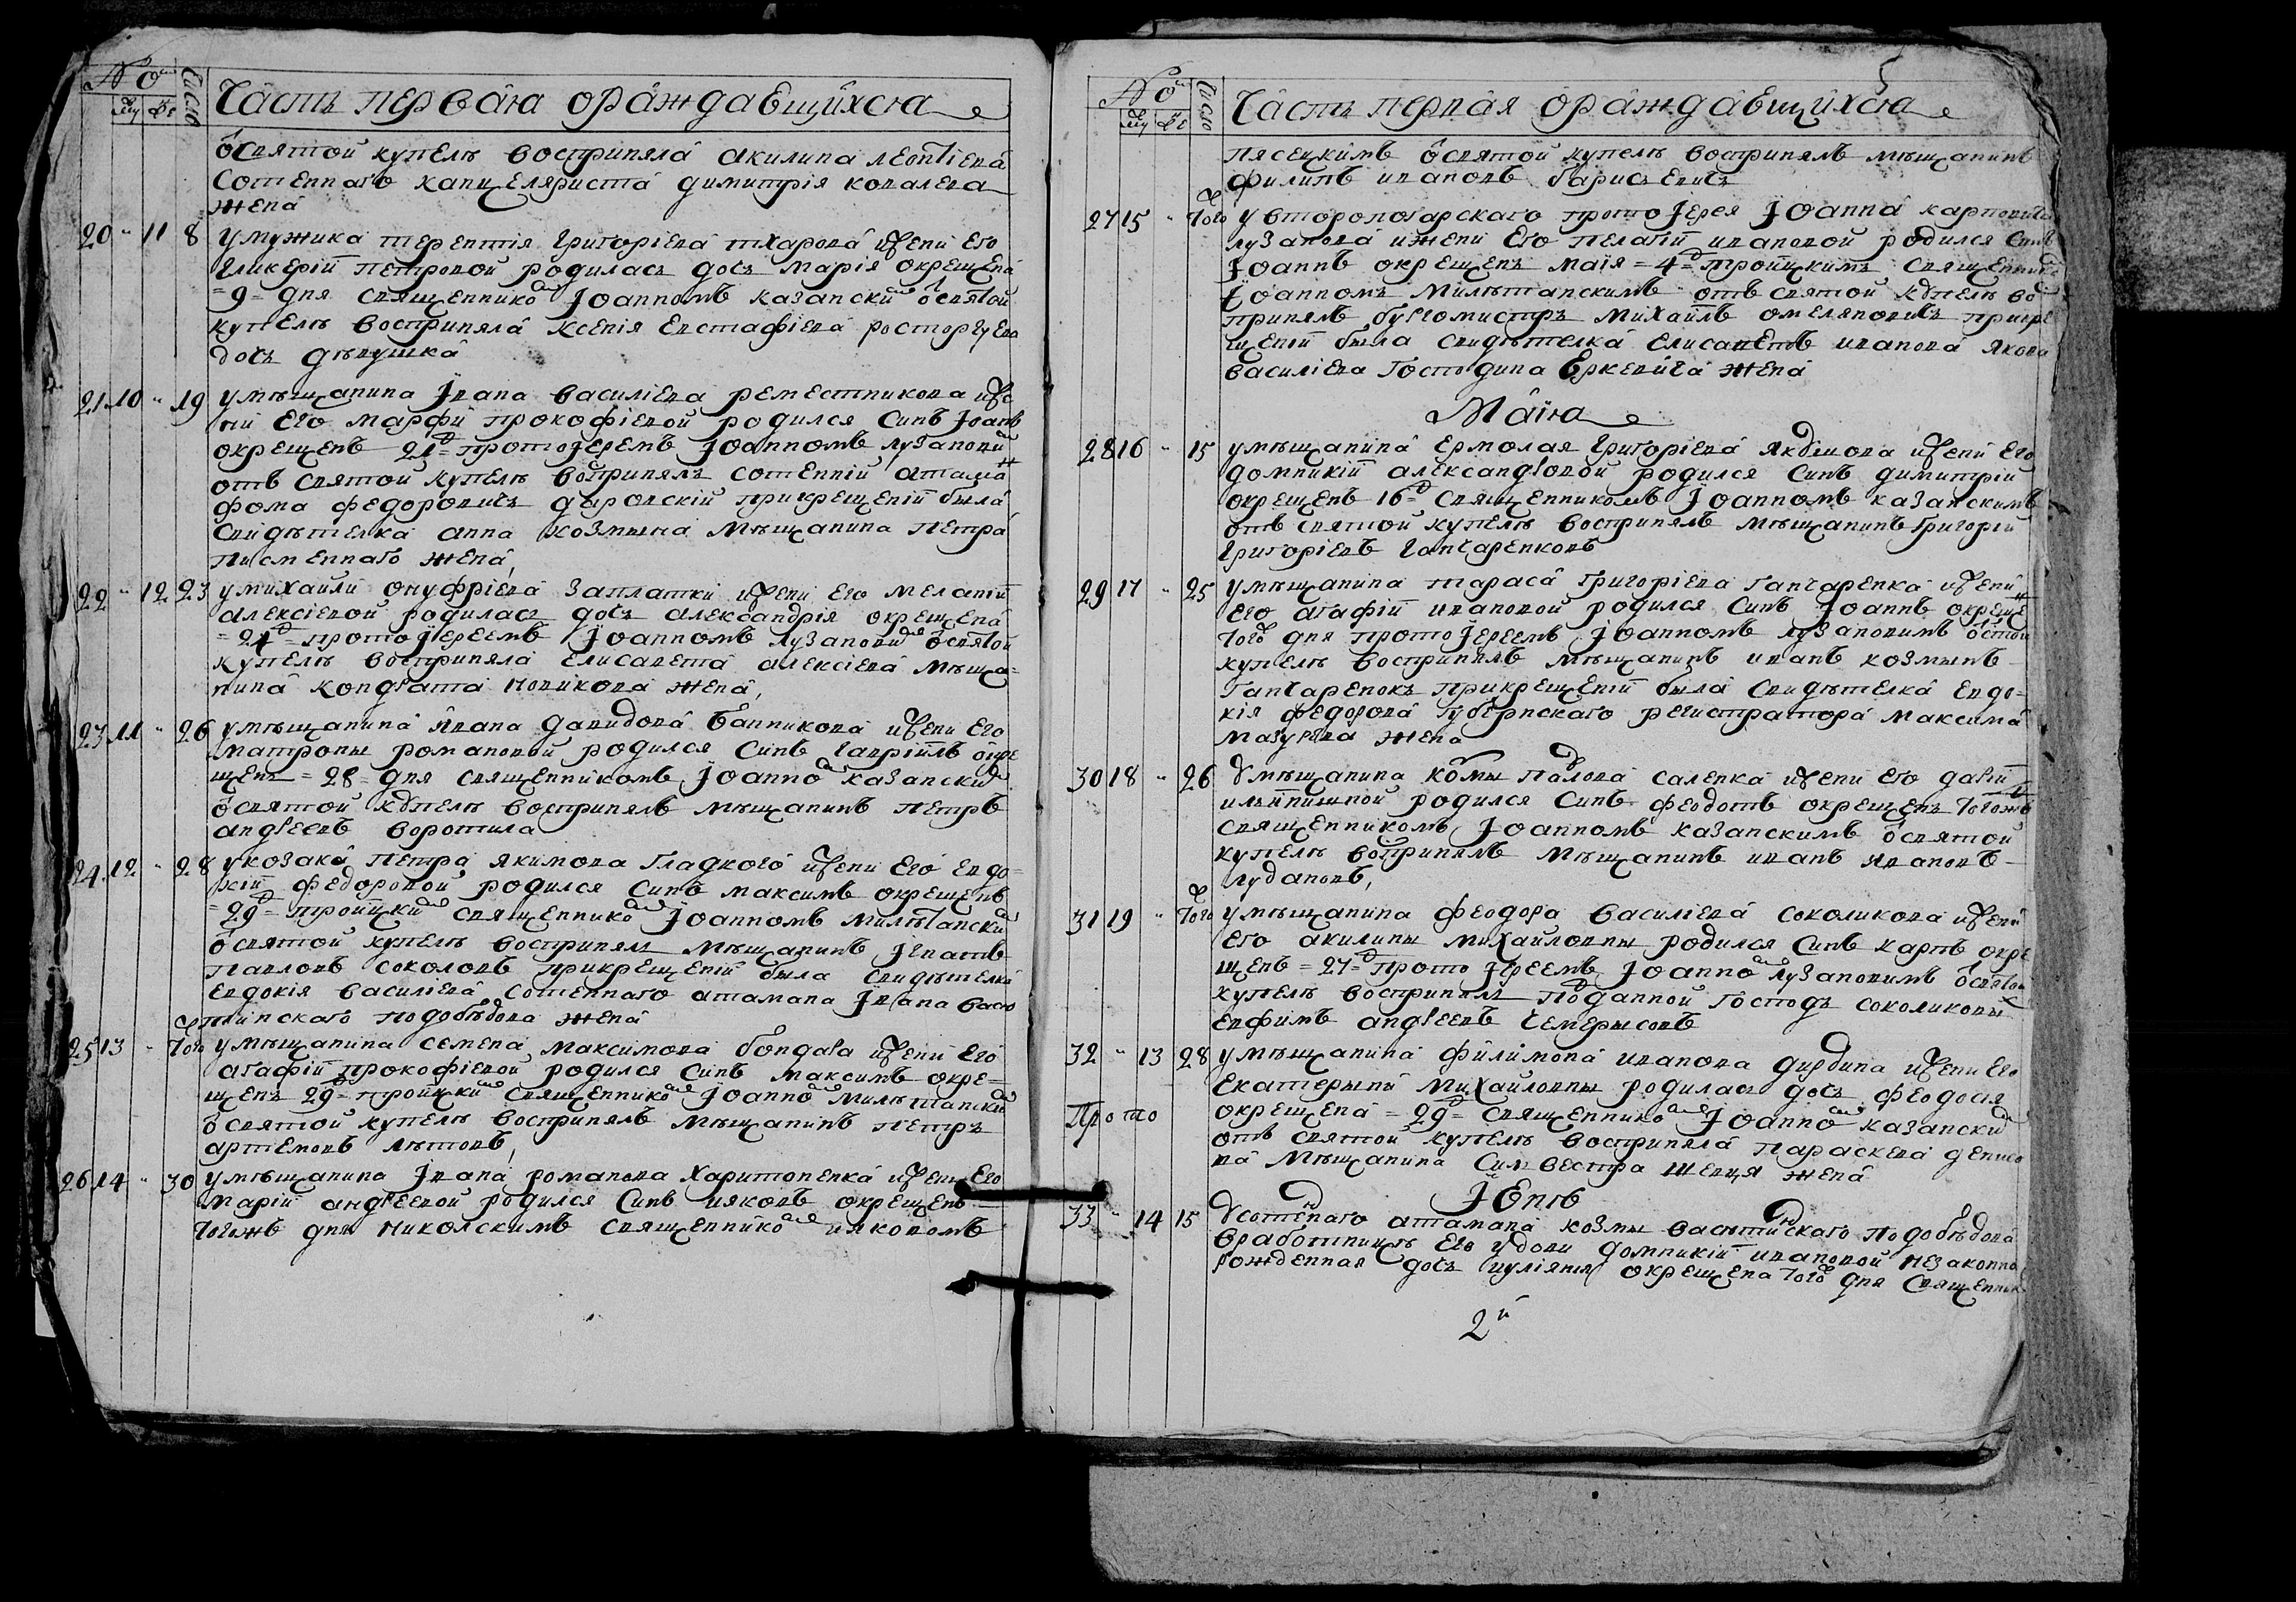 № Число
му же
Часть первая ораждавшихся
ѿсвятой купелѣ восприняла акилина леонтиева
Сотеннаго канцеляриста димитрія ковалева
жена
20 " 11 8 умужика терентія григоріева тхарова ижени его
гликеріи петровой родилась дочь марія окрещена
=9= дня священником Іоанномъ казанским ѿсвятой
купелѣ восприняла ксенія евстафіева росторгуева
дочъ дѣвушка
21 10 " 19 умѣщанина Івана василіева реместникова иже
ни его марфи прокофіевой родился синъ Іоанъ
окрещенъ 21д протоіереемъ Іоанномъ лузановим
отъ святой купелѣ воспринялъ сотенній атаман
фома федоровичъ дыровскій прикрещеніи была
свидѣтелка анна козмына мѣщанина петра
писменнаго жена,
22 " 12 23 умихаили онуфріева заплатки ижени его меланіи
алексіевой родилась дочъ александрія окрещена
=24д= протоіереемъ Іоанномъ лузановим ѿсвятой
купелѣ восприняла елисавета алексіева мѣща-
нина кондрата новикова жена,
23 11 " 26 умѣщанина Івана давидова банникова ижени его
матроны романовой родился синъ гавріилъ окре
щенъ =28= дня священникомъ Іоанном казанским
ѿсвятой купелѣ воспринялъ мѣщанинъ петръ
андреевъ воротила
24 12 " 28 укозака петра якимова гладкого ижени его евдо-
кіи федоровой родился синъ максимъ окрещенъ
=29д= троицким священником Іоанномъ милѣтанским
ѿсвятой купелѣ воспринялъ мѣщанинъ Ігнатъ
павловъ соколовъ прикрещеніи была свидѣтелка
евдокія василіева сотеннаго атамана Івана васю
тинскаго подобѣдова жена
25 13 " того ч умѣщанина семена максимова бондара ижени его
агафіи прокофіевой родился синъ максимъ окре-
щенъ 29д троицким священником Іоанном милѣтанским
ѿсвятой купелѣ воспринялъ мѣщанинъ петръ
артемовъ лѣтовъ,
26 14 " 30 умѣщанина Івана романова харитоненка ижени его
маріи андреевой родился синъ ияковъ окрещенъ
тогожъ дня николскимъ священником ияковомъ
5
№ Число
му же
Часть первая ораждавшихся
пясецкимъ ѿсвятой купелѣ воспринялъ мѣщанинъ
филипъ ивановъ барисъевичъ
27 15 " того ч увторопогарскаго протоІерея Іоанна карповича
лузанова ижени его пелагіи ивановой родился синъ
Іоаннъ окрещенъ маія =4д= троицкимъ священником
Іоанномъ милѣтанскимъ отъ святой купелѣ во
спринялъ бургомистръ михаилъ омеляновичъ прикре
щеніи была свидѣтелка елисаветъ иванова якова
василіева господина Еркевича жена
Маія
28 16 " 15 умѣщанина ермолая григоріева якушова ижени его
домникіи александровой родился синъ димитрій
окрещенъ 16д священникомъ Іоанномъ казанскимъ
отъ святой купелѣ воспринялъ мѣщанинъ григорій
григоріевъ ганчаренковъ
29 17 " 25 умѣщанина тараса григоріева ганчаренка ижени
его агафіи ивановой родился синъ Іоаннъ окреще н
того дня протоІереемъ Іоанномъ лузановимъ ѿстой
купелѣ воспринялъ мѣщанинъ иванъ козмынъ
ганчаренокъ прикрещеніи была свидѣтелка евдо-
кія федорова губернскаго регистратора максима
мазурева жена
30 18 " 26 Умѣщанина козмы павлова саленка ижени его даріи
ильинишной родился синъ феодотъ окрещенъ тогожъ
священникомъ Іоанномъ казанскимъ ѿсвятой
купелѣ воспринялъ мѣщанинъ иванъ ивановъ
лудановъ,
31 19 " того ч умѣщанина феодора василіева соколикова ижени
его акилины михаиловны родился синъ карпъ окре
щенъ =27д= протоІереемъ Іоанном лузановимъ ѿсвятой
купелѣ воспринялъ подданной господъ соколиковых
евфимъ андреевъ чемерысовъ
32 " 13 28 умѣщанина филимона иванова дурбина ижени его
екатерыни михаиловны родилась дочъ феодосія
окрещена =29д= священником Іоанном казанским
отъ святой купелѣ восприняла параскева денисо
ва мѣщанина силвестра шевця жена
Прото
Іюнь
33 " 14 15 Усотеннаго атамана козмы васютинскаго подобѣдова
вработницѣ его удови домникіи ивановой незаконно
рожденная дочъ иуліянія окрещена того дня священник
2й